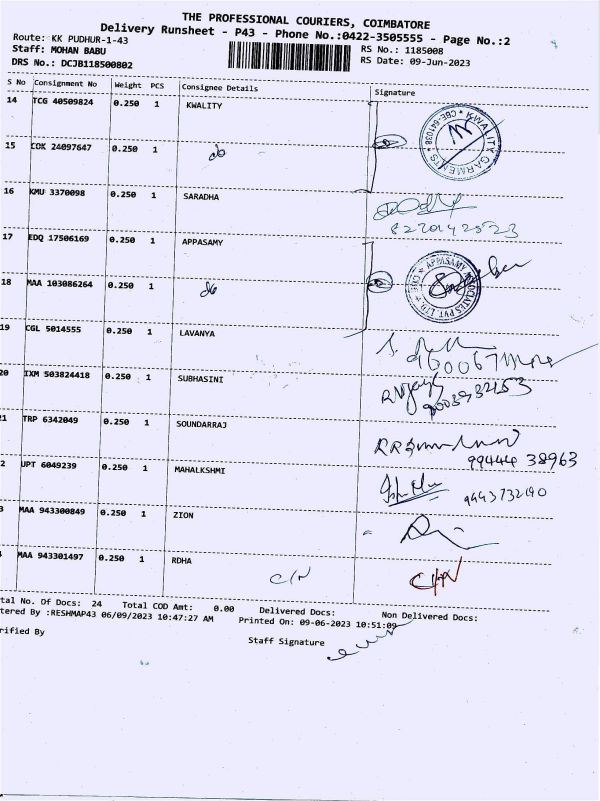 THE PROFESSIONAL COURIERS, COIMBATORE
Delivery Runsheet - P43 - Phone No.:0422-3505555 - Page No.:2
Route: KK PUDHUR-1-43
Staff: MOHAN BABU
RS No.: 1185008
DRS No.: DCJB118500802
RS Date: 09-Jun-2023
S No Consignment No Weight PCS Consignee Details Signature
14 TCG 40509824 0.250 1 KWALITY
KWALITY GARMENTS * CBE-641038 *
15 COK 24097647 0.250 1 do
16 KMU 3370098 0.250 1 SARADHA
17 EDQ 17506169 0.250 1 APPASAMY
18 MAA 103086264 0.250 1 do
19 CGL 5014555 0.250 1 LAVANYA
20 IXM 503824418 0.250 1 SUBHASINI
1 TRP 6342049 0.250 1 SOUNDARRAJ
99444 38963
2 UPT 6049239 0.250 1 MAHALKSHMI
3 MAA 943300849 0.250 1 ZION
MAA 943301497 0.250 1 RDHA
C/N C/N
tal No. Of Docs: 24 Total COD Amt: 0.00 Delivered Docs: Non Delivered Docs:
tered By :RESHMAP43 06/09/2023 10:47:27 AM Printed On: 09-06-2023 10:51:09
rified By Staff Signature